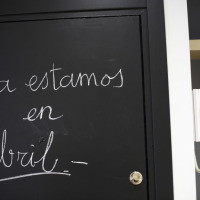 a estamos
en
bril.-